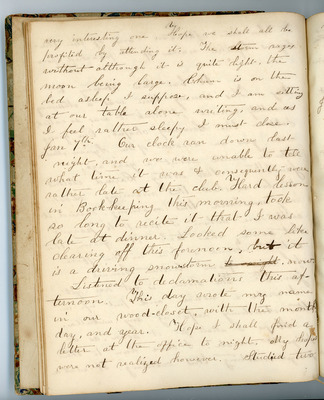 very interesting one. Hope we shall all be
profited by attending it. The storm rages
without although it is quite light, the
moon being large. is on the
bed asleep I suppose, and I am sitting
at our table alone writing, and as
I feel rather sleepy I must close.
Jan 7th. Our clock ran down last
night, and we were unable to tell
what time it was & consequently were
rather late at the club. Hard lesson
in Book-keeping this morning, took
so long to recite it that I was
late at dinner. Looked some like
clearing off this forenoon, but it
is a driving snowstorm to-night, now.
Listened to declamations this af-
ternoon. This day wrote my name
in our wood-closet, with the month
day, and year. Hope I shall find a
letter at the office to night. My hopes
were not realized however. Studied two